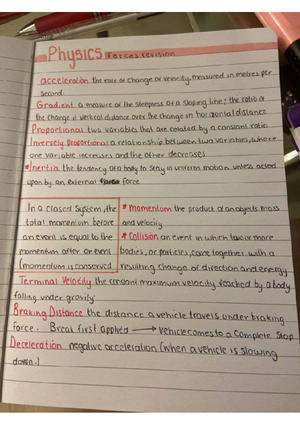 Physics Forces revision
acceleration the rate of change of velocity, measured in metres per
second.
Gradient a measure of the steepness of a sloping line; the ratio of
the change of vertical distance over the change in horizontal distance
Proportional two variables that are related by a constant ratio
Inversely proportional a relationship between two variables, where
one variable increases and the other decreases
*Inertia the tendency of a body to stay in uniform motion unless acted
upon by an external force
In a closed system, the
total momentum before
an event is equal to the
momentum after an event
(momentum is conserved)
*momentum the product of an objects mass
and velocity
*Collision an event in which two or more
bodies, or particles, come together with a
resulting change of direction and energy
Terminal Velocity the constant maximum velocity reached by a body
falling under gravity
Braking Distance the distance a vehicle travels under braking
force. Break first applied → vehicle comes to a complete stop
Deceleration negative acceleration (when a vehicle is slowing
down.)